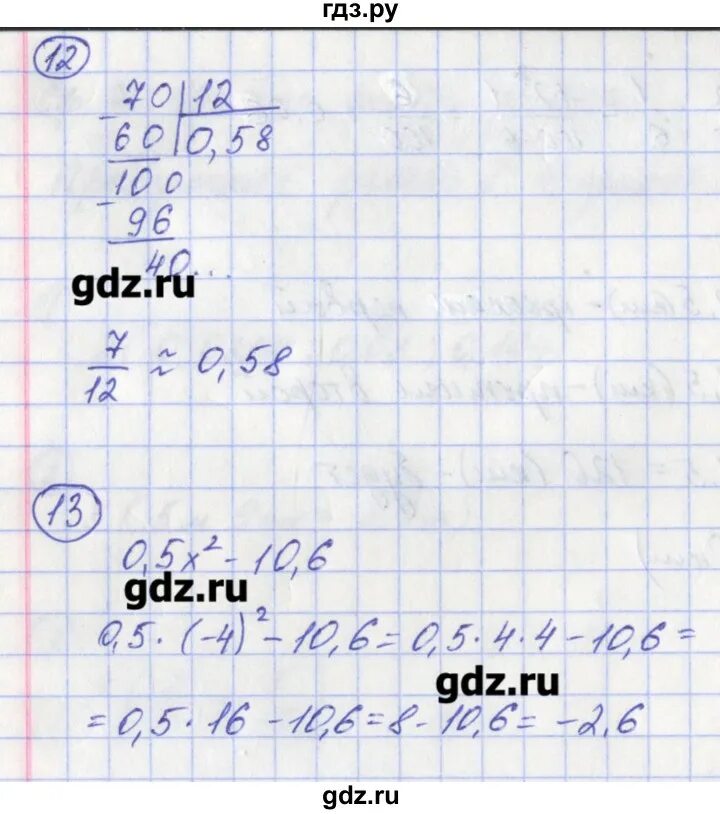 гдз.ру
12
70 | 12
- 60 | 0,58
100
- 96
40...
gdz.ru
7/12 ≈ 0,58
13
0,5x² - 10,6
gdz.ru
0,5 · (-4)² - 10,6 = 0,5 · 4 · 4 - 10,6 =
gdz.ru
= 0,5 · 16 - 10,6 = 8 - 10,6 = -2,6
gdz.ru